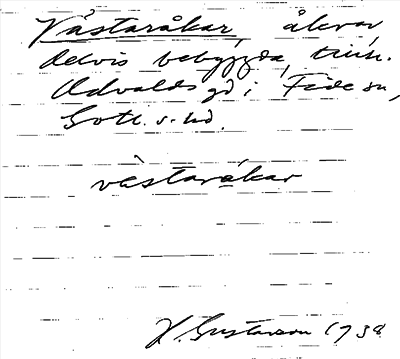 Västaråkar, åkrar,
delvis bebyggda, till
Udvalds gd i Fide sn,
Gotl. s. hd.
västaråkar
H. Gustavson 1938